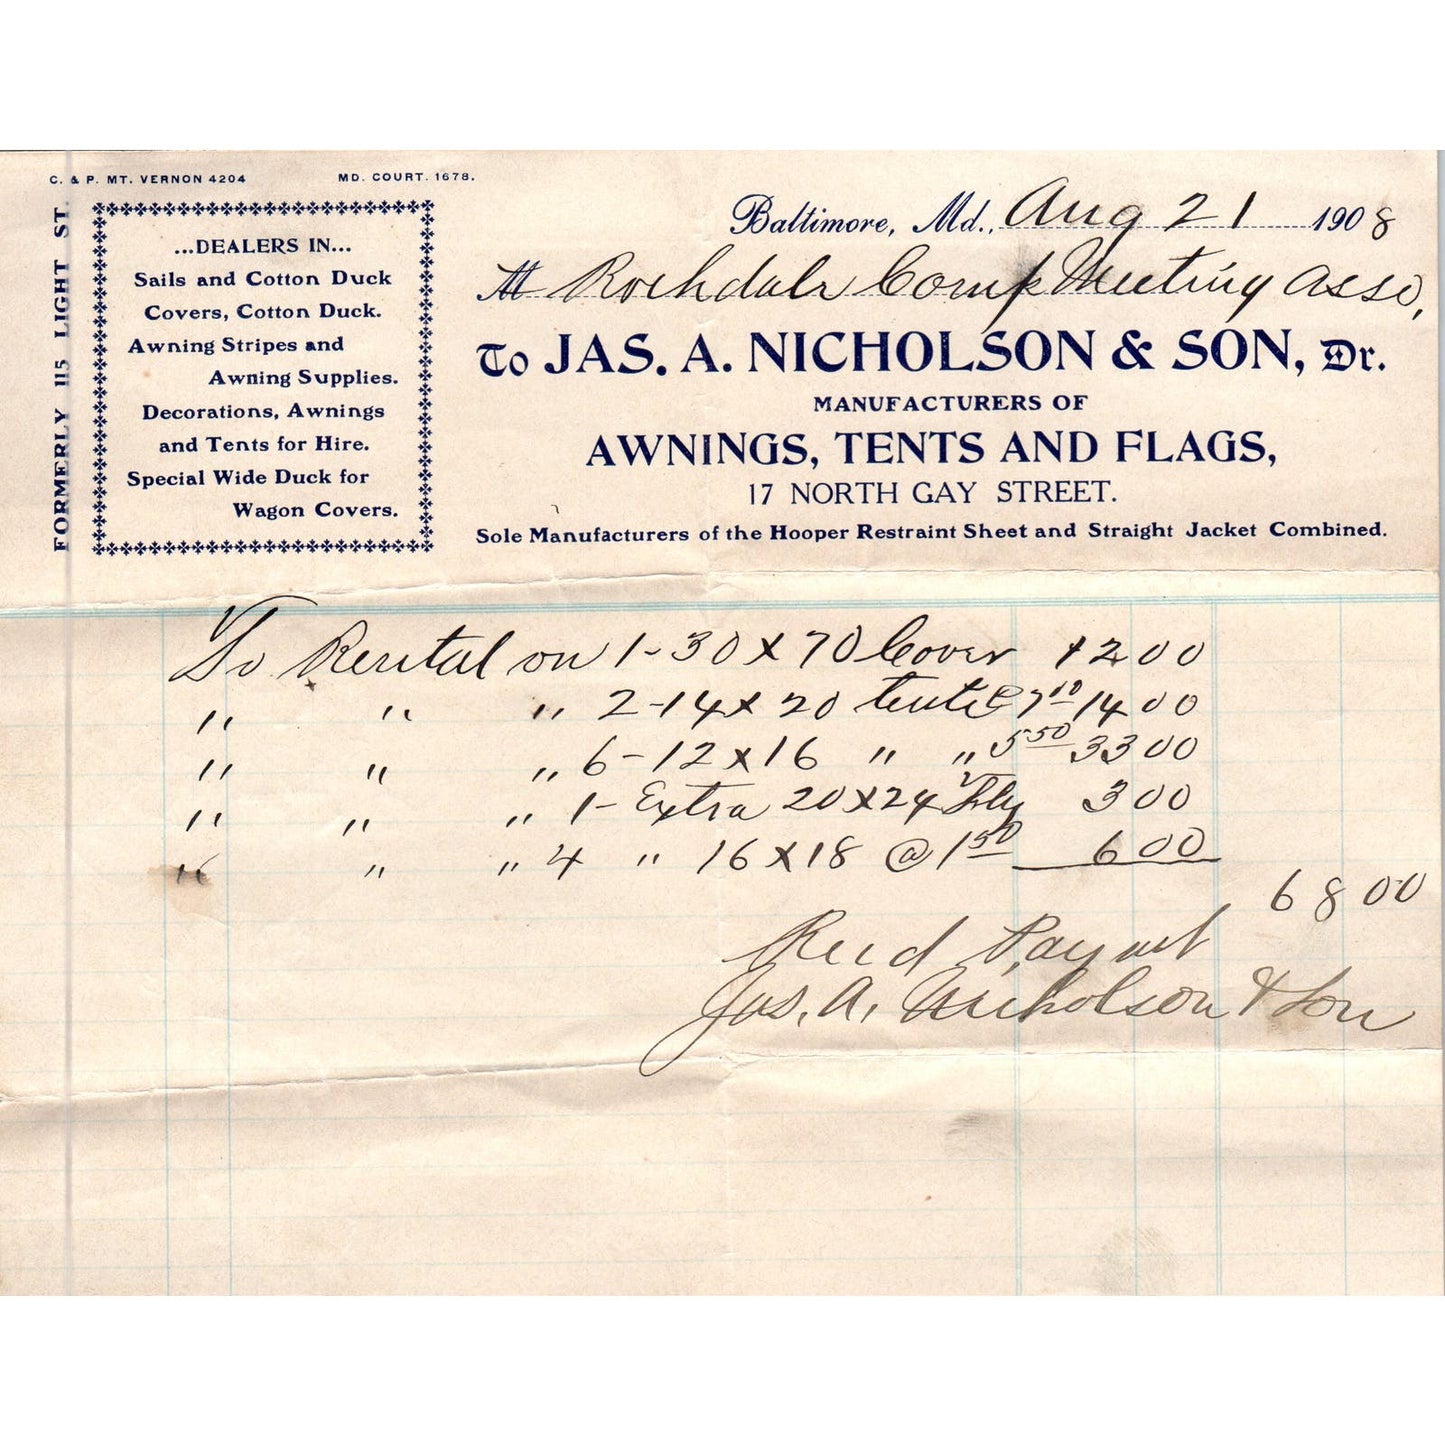 C. & P. MT. VERNON 4204 MD. COURT. 1678.
FORMERLY 115 LIGHT ST.
...DEALERS IN...
Sails and Cotton Duck
Covers, Cotton Duck.
Awning Stripes and
Awning Supplies.
Decorations, Awnings
and Tents for Hire.
Special Wide Duck for
Wagon Covers.
Baltimore, Md., Aug 21 1908
Rochdale Camp Meeting Asso,
To JAS. A. NICHOLSON & SON, Dr.
MANUFACTURERS OF
AWNINGS, TENTS AND FLAGS,
17 NORTH GAY STREET.
Sole Manufacturers of the Hooper Restraint Sheet and Straight Jacket Combined.
To Rental on 1-30 x 70 Cover 12 00
" " " 2-14 x 20 tents @ 14 00
" " " 6-12 x 16 " " 5 50 33 00
" " " 1- Extra 20 x 24 Fly 3 00
" " " 4 " 16 x 18 @ 1 50 6 00
68 00
Recd Paymt
Jas. A. Nicholson & Son